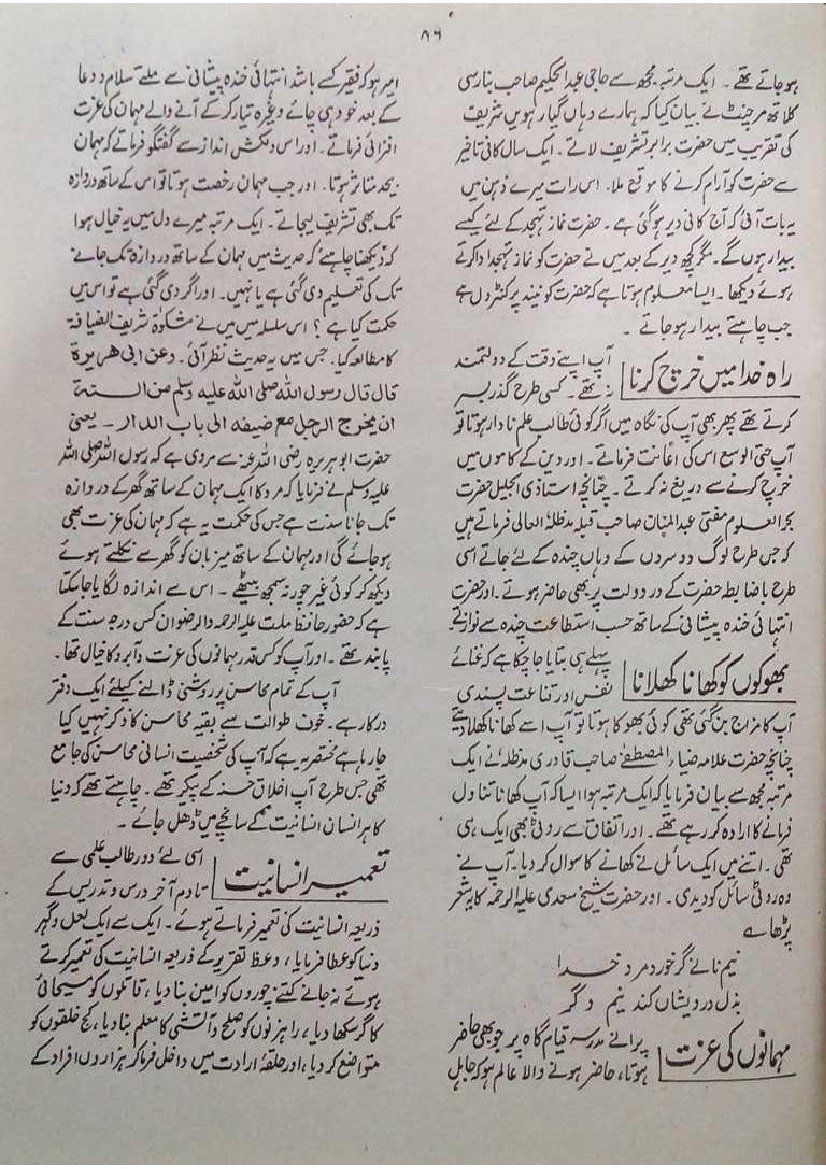 ۸۶
ہو جاتے تھے ۔ ایک مرتبہ مجھ سے حاجی عبدالحکیم صاحب بنارسی
کلاتھ مرچنٹ نے بیان کیا کہ ہمارے وہاں گیارہویں شریف
کی تقریب میں حضرت برابر تشریف لاتے ۔ ایک سال کافی تاخیر
سے حضرت کو آرام کرنے کا موقع ملا۔ اس رات میرے ذہن میں
یہ بات آئی کہ آج کافی دیر ہوگئی ہے ۔ حضرت نماز تہجد کے لئے کیسے
بیدار ہوں گے۔ مگر کچھ دیر کے بعد میں نے حضرت کو نماز تہجد ادا کرتے
ہوئے دیکھا ۔ ایسا معلوم ہوتا ہے کہ حضرت کو نیند پر کنٹرول ہے
جب چاہتے بیدار ہو جاتے ۔
راہ خدا میں خرچ کرنا
آپ اپنے وقت کے دولتمند
نہ تھے ۔ کسی طرح گذر بسر
کرتے تھے پھر بھی آپ کی نگاہ میں اگر کوئی طالب علم نادار ہوتا تو
آپ حتی الوسع اس کی اعانت فرماتے ۔ اور دین کے کاموں میں
خرچ کرنے سے دریغ نہ کرتے ۔ چنانچہ استاذی الجلیل حضرت
بحرالعلوم مفتی عبدالمنان صاحب قبلہ مدظلہ العالی فرماتے ہیں
کہ جس طرح لوگ دوسروں کے وہاں چندہ کے لئے جاتے اسی
طرح باضابطہ حضرت کے در دولت پر بھی حاضر ہوتے ۔ اور حضرت
انتہائی خندہ پیشانی کے ساتھ حسب استطاعت چندہ سے نوازتے
بھوکوں کو کھانا کھلانا
پہلے ہی بتایا جا چکا ہے کہ غنائے
نفس اور قناعت پسندی
آپ کا مزاج بن گئی تھی کوئی بھوکا ہوتا تو آپ اسے کھانا کھلا دیتے
چنانچہ حضرت علامہ ضیاء المصطفےٰ صاحب قادری مدظلہ نے ایک
مرتبہ مجھ سے بیان فرمایا کہ ایک مرتبہ ہوا ایسا کہ آپ کھانا تناول
فرمانے کا ارادہ کر رہے تھے ۔ اور اتفاق سے روٹی بھی ایک ہی
تھی ۔ اتنے میں ایک سائل نے کھانے کا سوال کر دیا ۔ آپ نے
وہ روٹی سائل کو دیدی ۔ اور حضرت شیخ سعدی علیہ الرحمہ کا یہ شعر
پڑھا ؎
نیم نانے گر خورد مرد خدا
بذل درویشاں کند نیم دگر
مہمانوں کی عزت
پرانے مدرسہ قیام گاہ پر جو بھی حاضر
ہوتا، حاضر ہونے والا عالم ہو کہ جاہل
امیر ہو کہ فقیر کسے باشد انتہائی خندہ پیشانی سے ملتے سلام و دعا
کے بعد خود ہی چائے وغیرہ تیار کر کے آنے والے مہمان کی عزت
افزائی فرماتے ۔ اور اس دلکش انداز سے گفتگو فرماتے کہ مہمان
بیحد متاثر ہوتا ۔ اور جب مہمان رخصت ہوتا تو اس کے ساتھ دروازہ
تک بھی تشریف لیجاتے ۔ ایک مرتبہ میرے دل میں یہ خیال ہوا
کہ دیکھنا چاہئے کہ حدیث میں مہمان کے ساتھ دروازہ تک جانے
تک کی تعلیم دی گئی ہے یا نہیں ۔ اور اگر دی گئی ہے تو اس میں
حکمت کیا ہے ؟ اس سلسلہ میں میں نے مشکوٰۃ شریف الضیافۃ
کا مطالعہ کیا ۔ جس میں یہ حدیث نظر آئی ۔ وعن ابی ھریرۃ
قال قال رسول اللہ صلی اللہ علیہ وسلم من السنۃ
ان یخرج الرجل مع ضیفہ الی باب الدار ۔ یعنی
حضرت ابوہریرہ رضی اللہ عنہ سے مروی ہے کہ رسول اللہ صلی اللہ
علیہ وسلم نے فرمایا کہ مرد کا ایک مہمان کے ساتھ گھر کے دروازہ
تک جانا سنت ہے جس کی حکمت یہ ہے کہ مہمان کی عزت بھی
ہو جائے گی اور مہمان کے ساتھ میزبان کو گھر سے نکلتے ہوئے
دیکھ کر کوئی غیر چور نہ سمجھ بیٹھے ۔ اس سے اندازہ لگایا جا سکتا
ہے کہ حضور حافظ ملت علیہ الرحمہ والرضوان کس درجہ سنت کے
پابند تھے ۔ اور آپ کو کس قدر مہمانوں کی عزت و آبرو کا خیال تھا ۔
آپ کے تمام محاسن پر روشنی ڈالنے کیلئے ایک دفتر
درکار ہے ۔ خوف طوالت سے بقیہ محاسن کا ذکر نہیں کیا
جا رہا ہے مختصر یہ ہے کہ آپ کی شخصیت انسانی محاسن کی جامع
تھی جس طرح آپ اخلاق حسنہ کے پیکر تھے ۔ چاہتے تھے کہ دنیا
کا ہر انسان انسانیت کے سانچے میں ڈھل جائے ۔
تعمیر انسانیت
اسی لئے دور طالب علمی سے
تا دم آخر درس و تدریس کے
ذریعہ انسانیت کی تعمیر فرماتے ہوئے ۔ ایک سے ایک لعل و گہر
دنیا کو عطا فرمایا ، وعظ و تقریر کے ذریعہ انسانیت کی تعمیر کرتے
ہوئے نہ جانے کتنے چوروں کو امین بنا دیا ، قاتلوں کو مسیحائی
کا گر سکھا دیا ، راہزنوں کو صلح و آتشی کا معلم بنا دیا ، کج خلقوں کو
متواضع کر دیا ، اور حلقۂ ارادت میں داخل فرما کر ہزاروں افراد کے